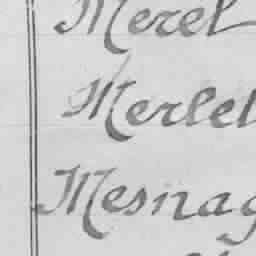 Merel
Merlet
Mesnag